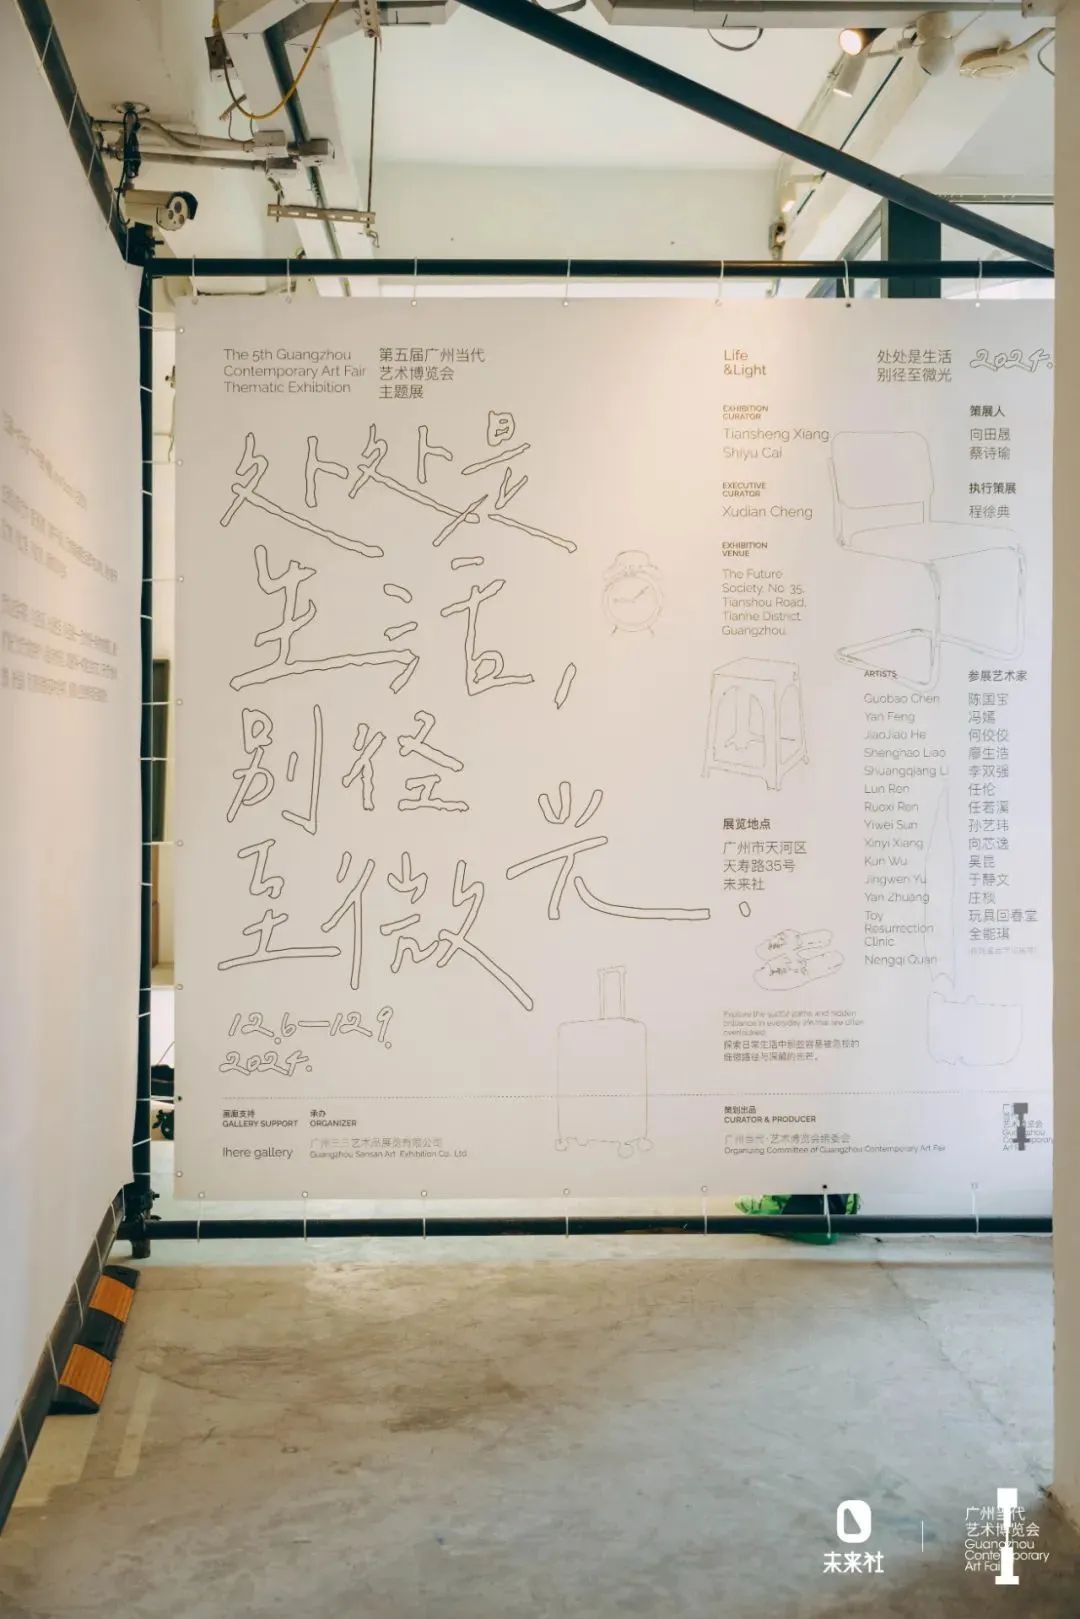 The 5th Guangzhou
Contemporary Art Fair
Thematic Exhibition
第五届广州当代
艺术博览会
主题展
Life
&Light
处处是生活
别径至微光
2024.
处处是
生活,
别径
至微光.
12.6—12.9.
2024.
EXHIBITION
CURATOR
Tiansheng Xiang
Shiyu Cai
策展人
向田晟
蔡诗瑜
EXECUTIVE
CURATOR
Xudian Cheng
执行策展
程徐典
EXHIBITION
VENUE
The Future
Society, No. 35,
Tianshou Road,
Tianhe District,
Guangzhou
展览地点
广州市天河区
天寿路35号
未来社
ARTISTS
Guobao Chen
Yan Feng
JiaoJiao He
Shenghao Liao
Shuangqiang Li
Lun Ren
Ruoxi Ren
Yiwei Sun
Xinyi Xiang
Kun Wu
Jingwen Yu
Yan Zhuang
Toy
Resurrection
Clinic
Nengqi Quan
参展艺术家
陈国宝
冯嫣
何佼佼
廖生浩
李双强
任伦
任若溪
孙艺玮
向芯逸
吴昆
于静文
庄棪
玩具回春堂
全能琪
Explore the subtle paths and hidden
brilliance in everyday life that are often
overlooked.
探索日常生活中那些容易被忽视的
细微路径与深藏的光芒。
画廊支持
GALLERY SUPPORT
Ihere gallery
承办
ORGANIZER
广州三三艺术品展览有限公司
Guangzhou Sansan Art Exhibition Co., Ltd.
策划出品
CURATOR & PRODUCER
广州当代·艺术博览会组委会
Organizing Committee of Guangzhou Contemporary Art Fair
未来社
广州当代
艺术博览会
Guangzhou
Contemporary
Art Fair